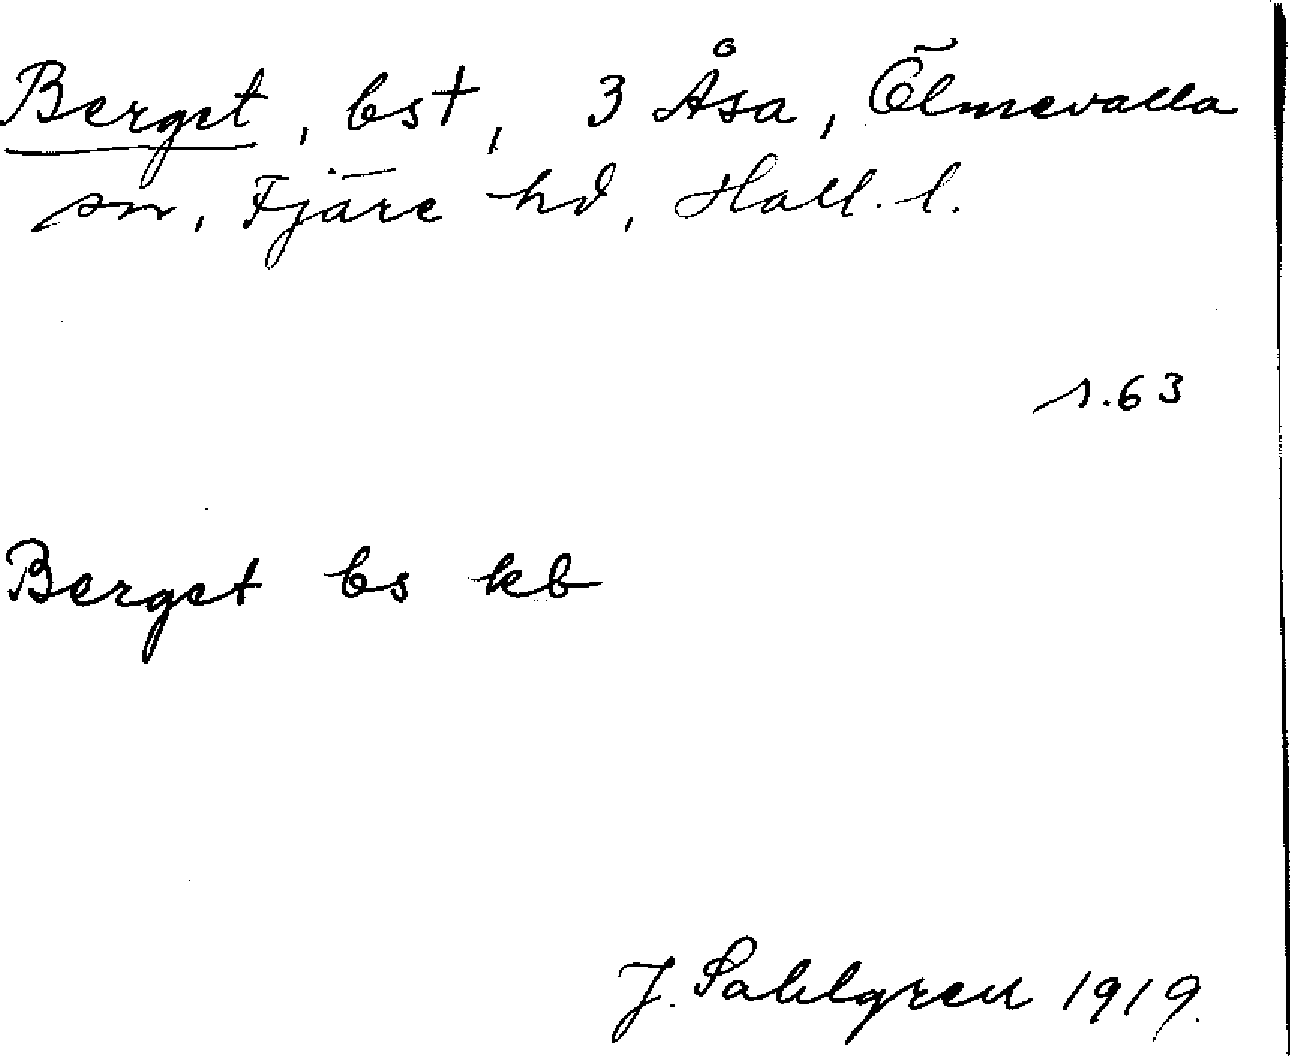 Berget, bst, 3 Åsa, Ölmevalla
sn, Fjäre hd, Hall. l.
s. 63
Berget bs kb
J. Sahlgren 1919.